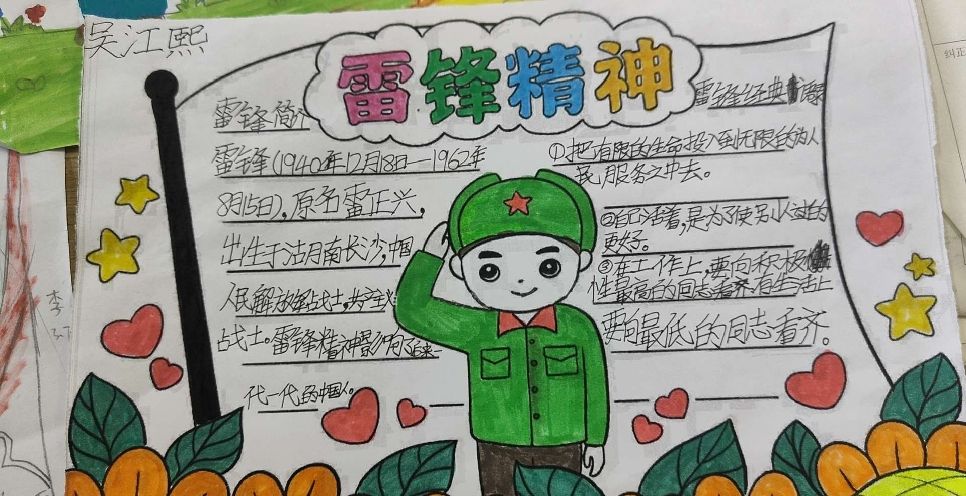 吴江熙
雷锋精神
雷锋简介
雷锋(1940年12月18日—1962年
8月15日),原名雷正兴,
出生于湖南长沙,中国
人民解放军战士,共产主义
战士。雷锋精神影响了后来一
代一代的中国人。
雷锋经典
①把有限的生命投入到无限的为人
民服务之中去。
②自己活着,是为了使别人过的
更好。
③在工作上,要向积极
性最高的同志看齐,在生活上
要向最低的同志看齐。
李
纠正